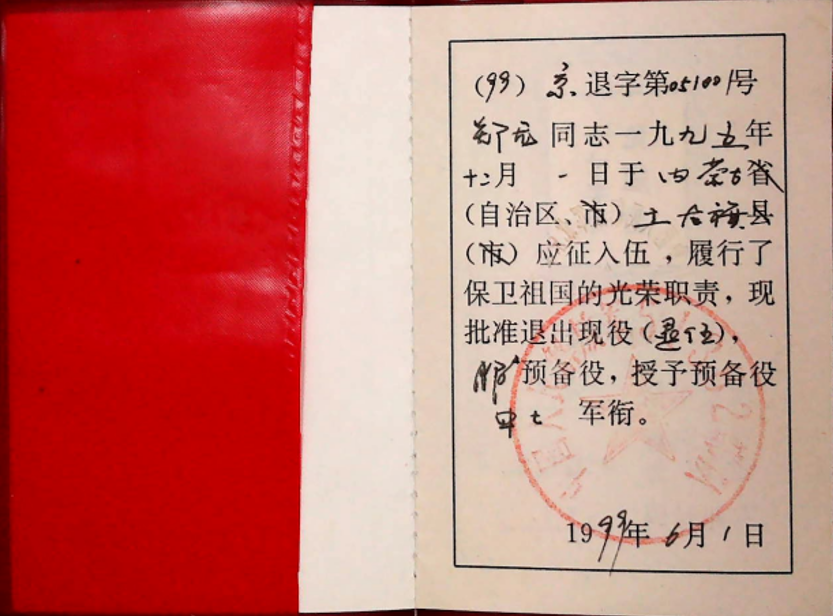 (99) 京 退字第051001号
郑龙 同志一九九五年
十二月 一日于内蒙古省
(自治区、市) 土右旗县
(市) 应征入伍，履行了
保卫祖国的光荣职责，现
批准退出现役(退伍)，
服 预备役，授予预备役
中士 军衔。
1999年6月1日